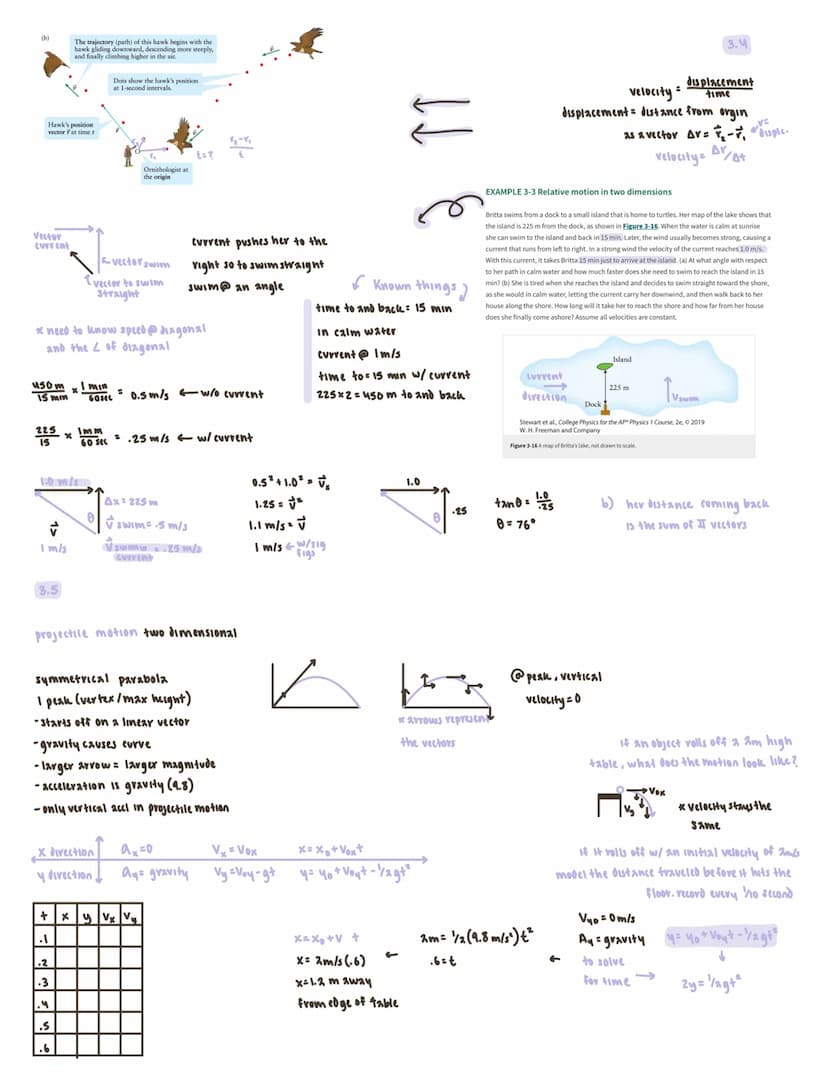 (b)
The trajectory (path) of this hawk begins with the
hawk gliding downward, descending more steeply,
and finally climbing higher in the air.
Dots show the hawk's position
at 1-second intervals.
Hawk's position
vector r⃗ at time t
r₁
t=?
r₂-r₁
t
Ornithologist at
the origin
3.4
velocity = displacement
time
displacement = distance from orgin
as a vector Δr = r⃗₂-r⃗₁
velocity = Δr/Δt
EXAMPLE 3-3 Relative motion in two dimensions
Britta swims from a dock to a small island that is home to turtles. Her map of the lake shows that
the island is 225 m from the dock, as shown in Figure 3-16. When the water is calm at sunrise
she can swim to the island and back in 15 min. Later, the wind usually becomes strong, causing a
current that runs from left to right. In a strong wind the velocity of the current reaches 1.0 m/s.
With this current, it takes Britta 15 min just to arrive at the island. (a) At what angle with respect
to her path in calm water and how much faster does she need to swim to reach the island in 15
min? (b) She is tired when she reaches the island and decides to swim straight toward the shore,
as she would in calm water, letting the current carry her downwind, and then walk back to her
house along the shore. How long will it take her to reach the shore and how far from her house
does she finally come ashore? Assume all velocities are constant.
Island
225 m
Dock
current
direction
Vswim
Stewart et al., College Physics for the AP® Physics 1 Course, 2e, © 2019
W. H. Freeman and Company
Figure 3-16 A map of Britta's lake, not drawn to scale.
vector
current
vector swim
vector to swim
straight
current pushes her to the
right so to swim straight
swim @ an angle
* need to know speed @ diagonal
and the ∠ of diagonal
Known things
time to and back = 15 min
in calm water
current @ 1m/s
time to = 15 min w/ current
225 x 2 = 450 m to and back
450 m x 1 min = 0.5 m/s ← w/o current
15 min 60 sec
225 x 1 min = .25 m/s ← w/ current
15 60 sec
1.0 m/s
Δx = 225 m
θ
v⃗ swim = .5 m/s
v⃗
1 m/s
v⃗ swim w = .25 m/s
current
0.5² + 1.0² = v⃗s
1.25 = v⃗²
1.1 m/s = v⃗
1 m/s ← w/sig
figs
1.0
.25
θ
tanθ = 1.0
.25
θ = 76°
b) her distance coming back
is the sum of II vectors
3.5
projectile motion two dimensional
symmetrical parabola
1 peak (vertex/max height)
-starts off on a linear vector
-gravity causes curve
-larger arrow = larger magnitude
-acceleration is gravity (9.8)
-only vertical accl in projectile motion
* arrows represent
the vectors
@ peak, vertical
velocity = 0
if an object rolls off a 2m high
table, what does the motion look like?
Vox
Vy
* velocity stays the
same
x direction ax=0 Vx = Vox x= x₀+Voxt
y direction ay= gravity Vy=Voy-gt y= y₀+Voyt-½gt²
if it rolls off w/ an initial velocity of 2m/s
model the distance traveled before it hits the
floor. record every 1/10 second
t x y Vx Vy
.1
.2
.3
.4
.5
.6
x=x₀+V t
x= 2m/s(.6)
x=1.2 m away
from edge of table
2m = ½(9.8 m/s²)t²
.6=t
Vyo = 0m/s
Ay = gravity
to solve
for time →
y= y₀+Voyt-½gt²
2y = ½gt²